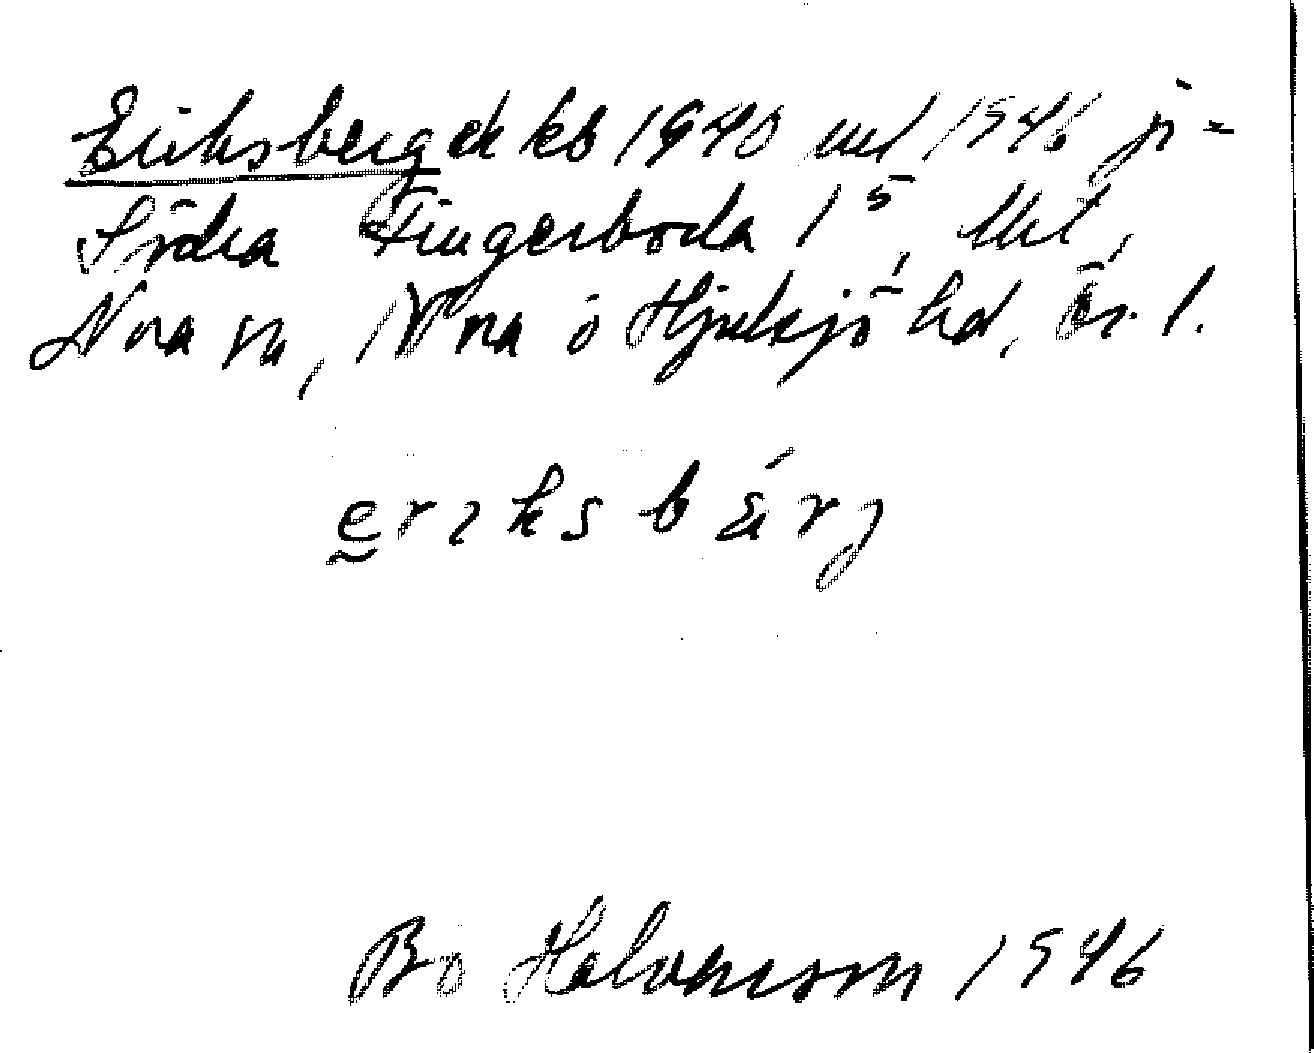 Eriksberg ek kb 1940 uel 1946 ji=
Södra Fingerboda 1⁵, Mtl,
Nora sn, Nora o Hjulsjö hd, Ör. l.
eriksbärj
Bo Halvarson 1946